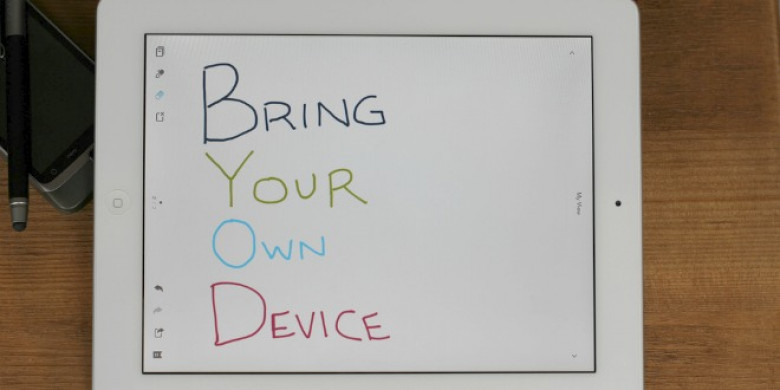 BRING
YOUR
OWN
DEVICE
My View